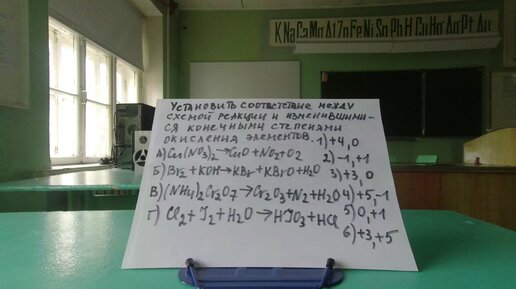 K Na Ca Mg Al Zn Fe Ni Sn Pb H Cu Hg Ag Pt Au
УСТАНОВИТЬ СООТВЕТСТВИЕ МЕЖДУ
СХЕМОЙ РЕАКЦИИ И ИЗМЕНИВШИМИ-
СЯ КОНЕЧНЫМИ СТЕПЕНЯМИ
ОКИСЛЕНИЯ ЭЛЕМЕНТОВ. 1) +4, 0
А) Cu(NO3)2→CuO+NO2+O2 2) -1, +1
Б) Br2+KOH→KBr+KBrO+H2O 3) +3, 0
В) (NH4)2Cr2O7→Cr2O3+N2+H2O 4) +5, -1
Г) Cl2+I2+H2O→HIO3+HCl 5) 0, +1
6) +3, +5